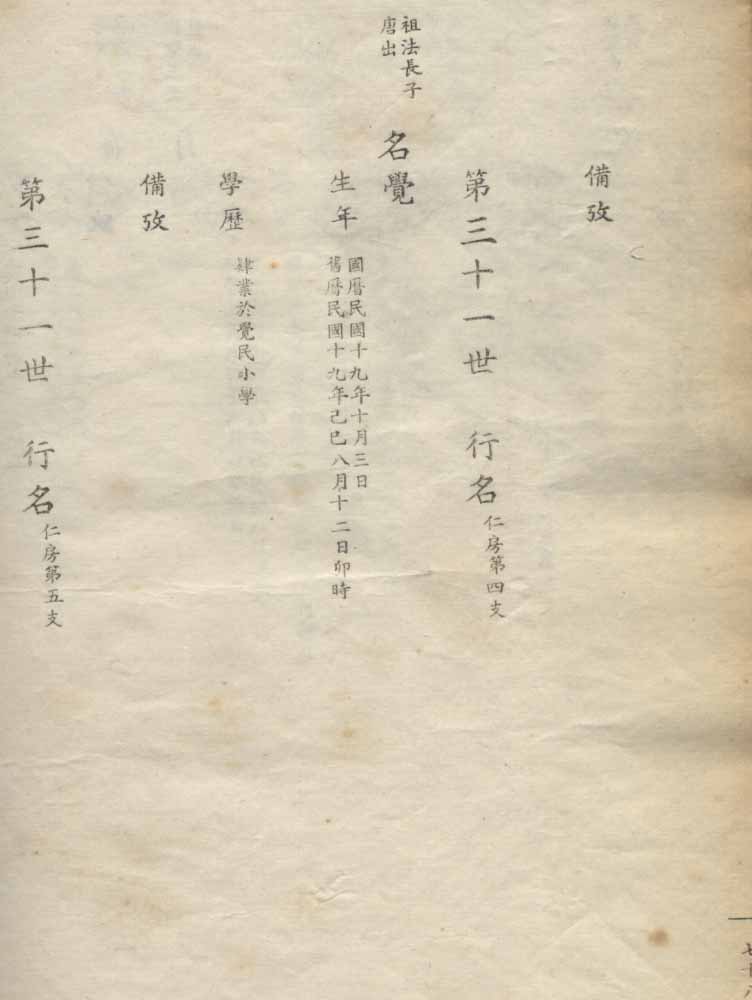 備攷
第三十一世 行名 仁房第四支
祖法長子
唐出
名覺
生年
國曆民國十九年十月三日
舊曆民國十九年己巳八月十二日卯時
學歷
肄業於覺民小學
備攷
第三十一世 行名 仁房第五支